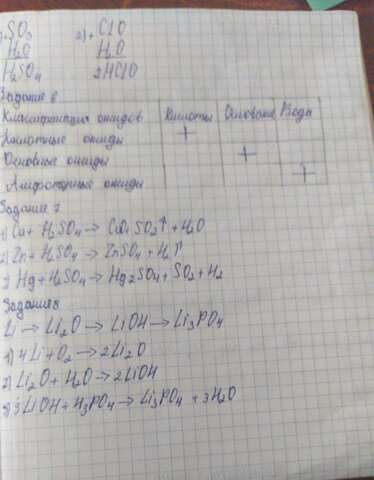 SO3 2) + Cl2O
H2O H2O
H2SO4 2HClO
Задание 6
Классификация оксидов Кислоты Основание Вода
Кислотные оксиды +
Основные оксиды +
Амфотерные оксиды +
Задание 7
1) Cu + H2SO4 → CuO SO2↑ + H2O
2) Zn + H2SO4 → ZnSO4 + H2↑
3 Hg + H2SO4 → Hg2SO4 + SO2 + H2
Задание 8
Li → Li2O → LiOH → Li3PO4
1) 4Li + O2 → 2Li2O
2) Li2O + H2O → 2LiOH
3) 3LiOH + H3PO4 → Li3PO4 + 3H2O